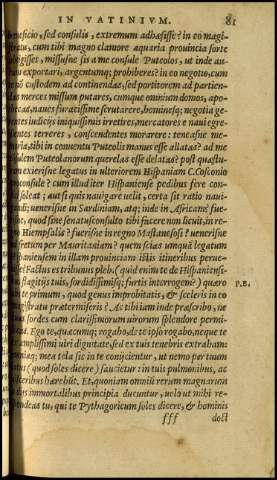 IN VATINIVM. 81
beneficio, sed consulis, extremum adhæsisse? in eo magi
tratu, cum tibi magno clamore aquaria prouincia sorte
obtigisset, missusne sis a me consule Puteolos, ut inde au-
rum exportari, argentumq; prohiberes? in eo negotio, cum
te nō custodem ad continendas, sed portitorem ad partien-
das merces missum putares, cumque omnium domos, apo-
thecas, naues furacissime scrutarere, hominesq; negotia ge-
rentes iudicijs iniquissimis irretires, mercatores e naui egre-
dientes terreres, conscendentes morarere: teneasne me-
moria, tibi in conuentu Puteolis manus esse allatas? ad me
consulem Puteolanorum querelas esse delatas? post quæstu-
ram exierisne legatus in ulteriorem Hispaniam C. Cosconio
proconsule? cum illud iter Hispaniense pedibus fere con-
fici soleat; aut si quis nauigare uelit, certa sit ratio naui-
gandi; uenerisne in Sardiniam, atq; inde in Africam? fue-
risne, quod sine senatusconsulto tibi facere non licuit, in re-
gno Hiempsalis? fuerisne in regno Mastanesosi? uenerisne
ad fretum per Mauritaniam? quem scias umquā legatum
Hispaniensem in illam prouinciam istis itineribus perue-
nisse? Factus es tribunus pleb. (quid enim te de Hispaniensi-
bus flagitijs tuis, sordidissimisq; furtis interrogem?) quæro
P.B.
ex te primum, quod genus improbitatis, & sceleris in eo
magistratu prætermiseris? Ac tibi iam inde præscribo, ne
tuas sordes cum clarissimorum uirorum splendore permi-
sceas. Ego te, quæcumq; rogabo, de te ipso rogabo, neque te
ex amplissimi uiri dignitate, sed ex tuis tenebris extraham:
omniaq; mea tela sic in te conijcientur, ut nemo per tuum
latus (quod soles dicere) saucietur: in tuis pulmonibus, ac
uisceribus hærebūt. Et, quoniam omniū rerum magnarum
a dijs immortalibus principia ducuntur, uolo ut mihi re-
spondeas tu, qui te Pythagoricum soles dicere, & hominis
fff doct